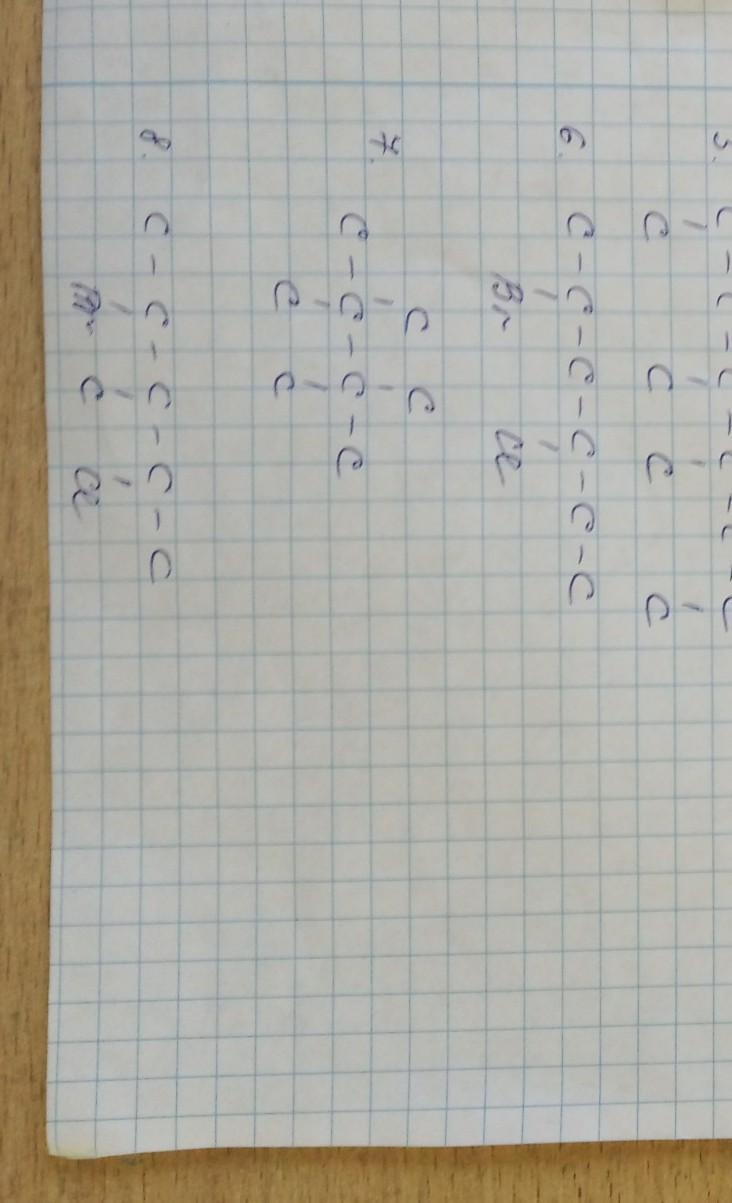 5. C - C - C - C - C - C
C C C C
6. C - C - C - C - C - C
Br Cl
C C
7. C - C - C - C
C C
8. C - C - C - C - C
Br C Cl